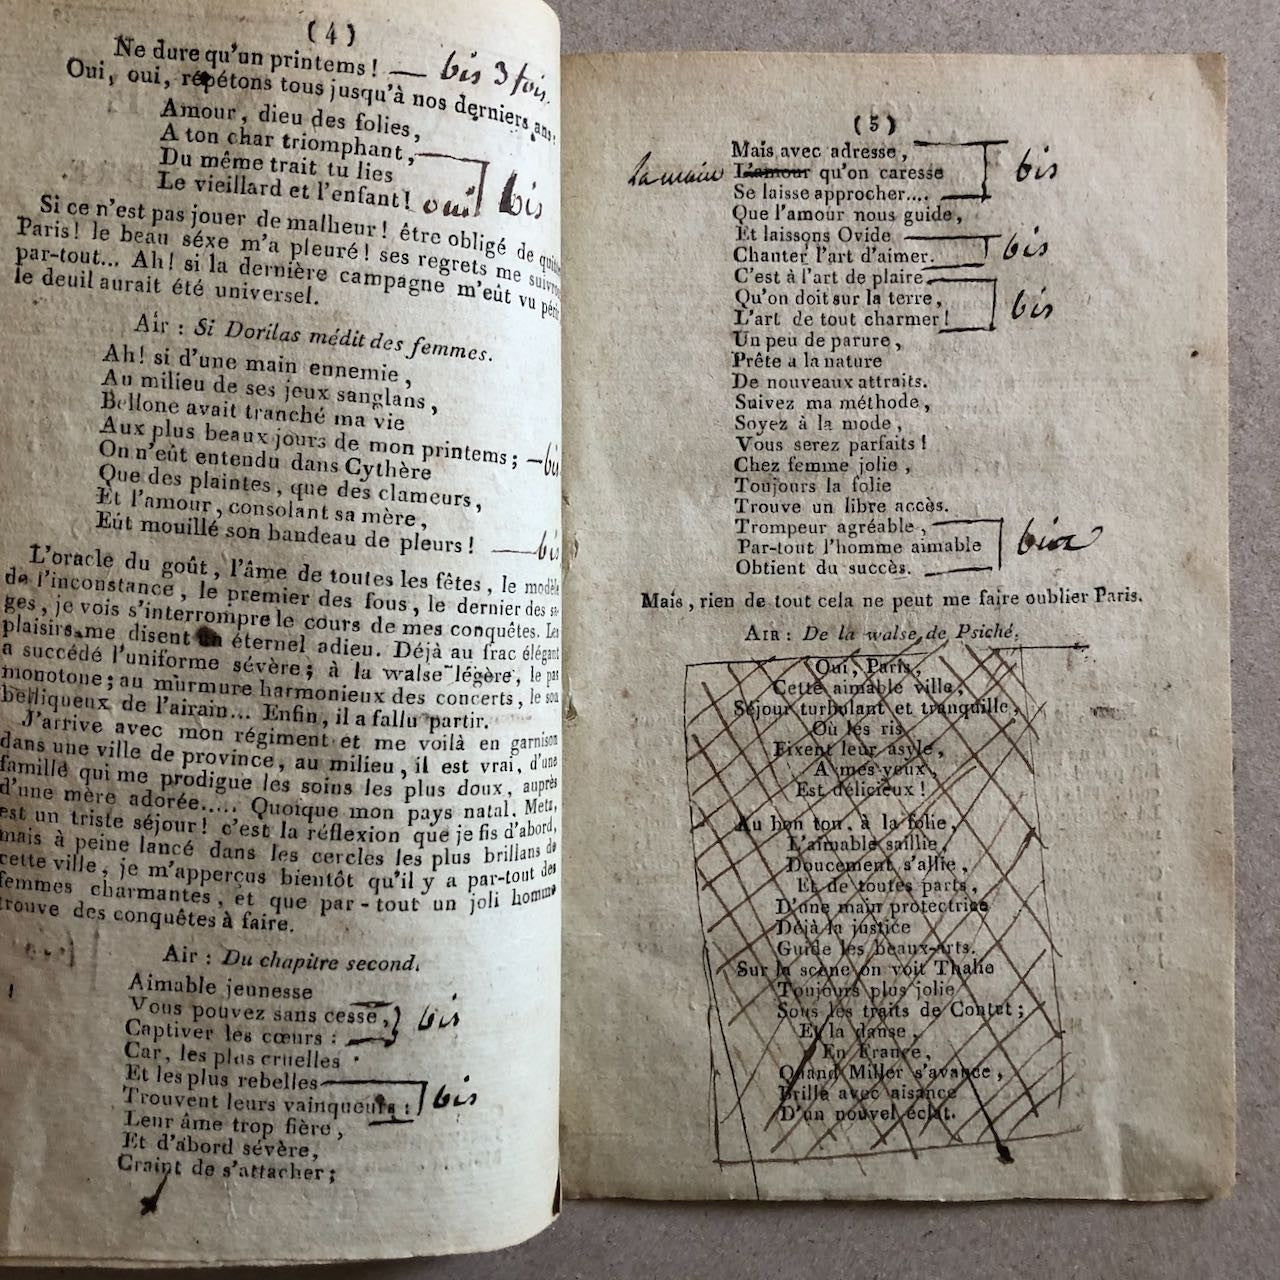 (4)
Ne dure qu'un printems ! — bis 3 fois.
Oui, oui, répétons tous jusqu'à nos derniers ans:
Amour, dieu des folies,
A ton char triomphant,
Du même trait tu lies
Le vieillard et l'enfant! oui! bis
Si ce n'est pas jouer de malheur! être obligé de
Paris! le beau séxe m'a pleuré! ses regrets me
par-tout... Ah! si la dernière campagne m'eût vu
le deuil aurait été universel.
Air : Si Dorilas médit des femmes.
Ah! si d'une main ennemie,
Au milieu de ses jeux sanglans,
Bellone avait tranché ma vie
Aux plus beaux jours de mon printems; — bis
On n'eût entendu dans Cythère
Que des plaintes, que des clameurs,
Et l'amour, consolant sa mère,
Eût mouillé son bandeau de pleurs! — bis
L'oracle du goût, l'âme de toutes les fêtes, le modèle
de l'inconstance, le premier des fous, le dernier des sa-
ges, je vois s'interrompre le cours de mes conquêtes. Les
plaisirs me disent un éternel adieu. Déjà au frac élégant
a succédé l'uniforme sévère; à la walse légère, le pas
monotone; au murmure harmonieux des concerts, le son
belliqueux de l'airain... Enfin, il a fallu partir.
J'arrive avec mon régiment et me voilà en garnison
dans une ville de province, au milieu, il est vrai, d'une
famille qui me prodigue les soins les plus doux, auprès
d'une mère adorée..... Quoique mon pays natal, Metz,
est un triste séjour! c'est la réflexion que je fis d'abord,
mais à peine lancé dans les cercles les plus brillans de
cette ville, je m'apperçus bientôt qu'il y a par-tout des
femmes charmantes, et que par-tout un joli homme
trouve des conquêtes à faire.
Air : Du chapitre second.
Aimable jeunesse
Vous pouvez sans cesse,
Captiver les cœurs : bis
Car, les plus cruelles
Et les plus rebelles
Trouvent leurs vainqueurs : bis
Leur âme trop fière,
Et d'abord sévère,
Craint de s'attacher;
(5)
Mais avec adresse,
La main L'amour qu'on caresse bis
Se laisse approcher....
Que l'amour nous guide,
Et laissons Ovide
Chanter l'art d'aimer. bis
C'est à l'art de plaire
Qu'on doit sur la terre, bis
L'art de tout charmer!
Un peu de parure,
Prête a la nature
De nouveaux attraits.
Suivez ma méthode,
Soyez à la mode,
Vous serez parfaits!
Chez femme jolie,
Toujours la folie
Trouve un libre accès.
Trompeur agréable,
Par-tout l'homme aimable bis
Obtient du succès.
Mais, rien de tout cela ne peut me faire oublier Paris.
Air : De la walse de Psiché.
Oui, Paris,
Cette aimable ville,
Séjour turbulant et tranquille,
Où les ris
Fixent leur asyle,
A mes yeux,
Est délicieux!
Au bon ton, à la folie,
L'aimable saillie,
Doucement s'allie,
Et de toutes parts,
D'une main protectrice
Déjà la justice
Guide les beaux-arts.
Sur la scène on voit Thalie
Toujours plus jolie
Sous les traits de Contat;
Et la danse,
En France,
Quand Miller s'avance,
Brille avec aisance
D'un nouvel éclat.